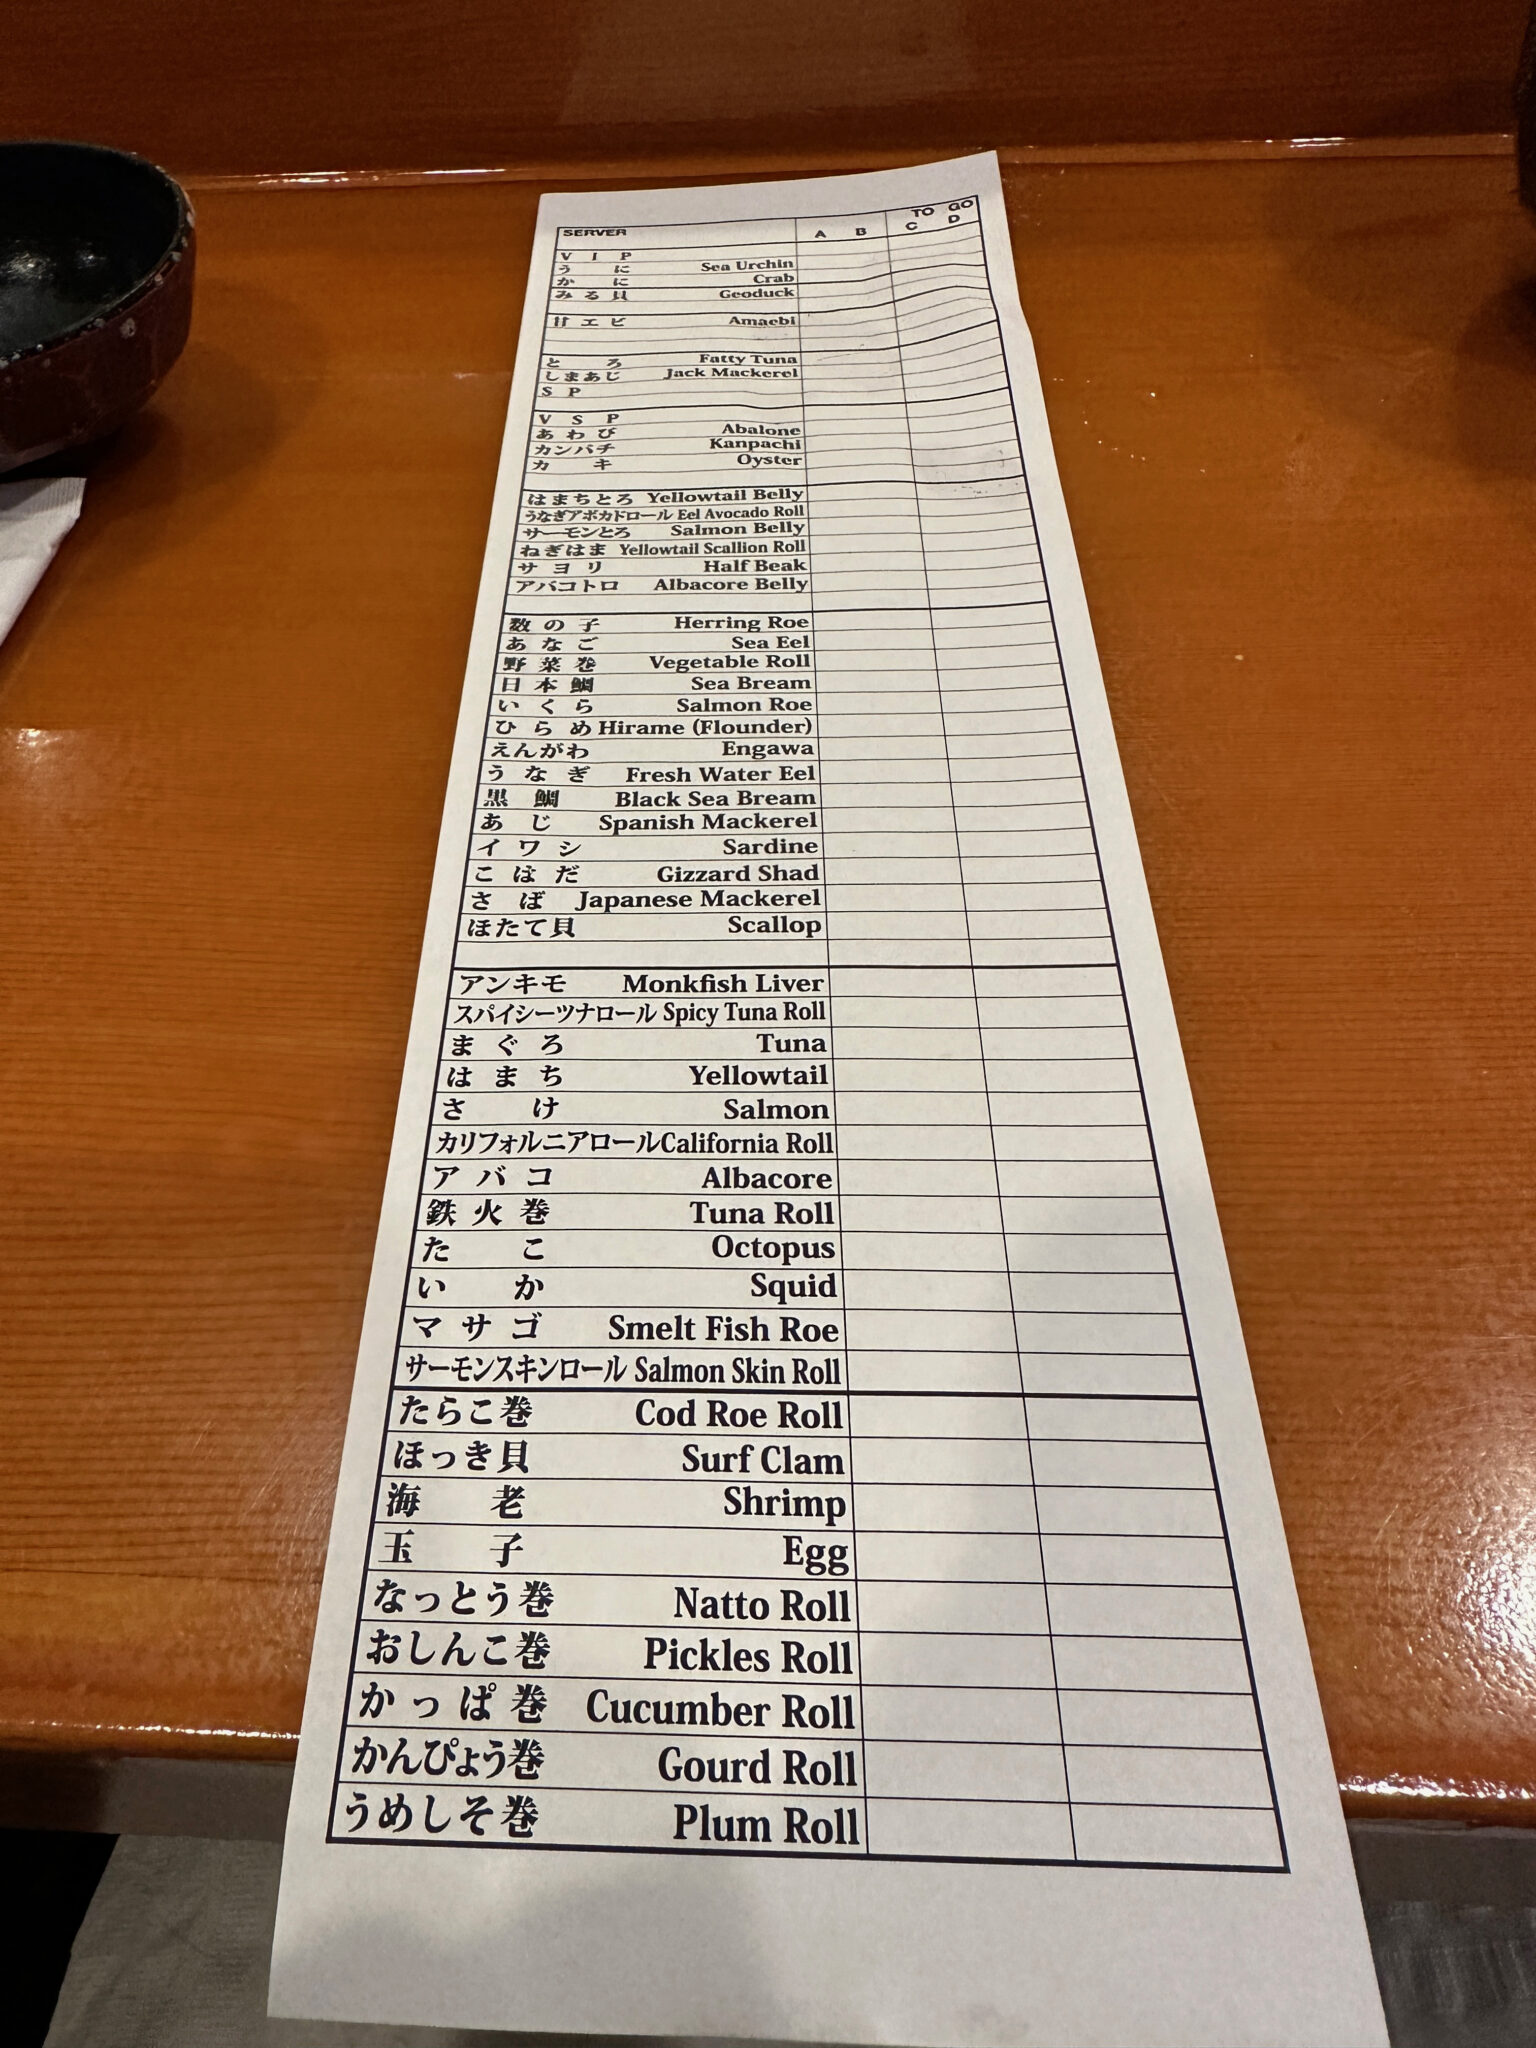 SERVER A B TO GO C D
V I P
うに Sea Urchin
かに Crab
みる貝 Geoduck
甘エビ Amaebi
とろ Fatty Tuna
しまあじ Jack Mackerel
S P
V S P
あわび Abalone
カンパチ Kanpachi
カキ Oyster
はまちとろ Yellowtail Belly
うなぎアボカドロール Eel Avocado Roll
サーモンとろ Salmon Belly
ねぎはま Yellowtail Scallion Roll
サヨリ Half Beak
アバコトロ Albacore Belly
数の子 Herring Roe
あなご Sea Eel
野菜巻 Vegetable Roll
日本鯛 Sea Bream
いくら Salmon Roe
ひらめ Hirame (Flounder)
えんがわ Engawa
うなぎ Fresh Water Eel
黒鯛 Black Sea Bream
あじ Spanish Mackerel
イワシ Sardine
こはだ Gizzard Shad
さば Japanese Mackerel
ほたて貝 Scallop
アンキモ Monkfish Liver
スパイシーツナロール Spicy Tuna Roll
まぐろ Tuna
はまち Yellowtail
さけ Salmon
カリフォルニアロール California Roll
アバコ Albacore
鉄火巻 Tuna Roll
たこ Octopus
いか Squid
マサゴ Smelt Fish Roe
サーモンスキンロール Salmon Skin Roll
たらこ巻 Cod Roe Roll
ほっき貝 Surf Clam
海老 Shrimp
玉子 Egg
なっとう巻 Natto Roll
おしんこ巻 Pickles Roll
かっぱ巻 Cucumber Roll
かんぴょう巻 Gourd Roll
うめしそ巻 Plum Roll